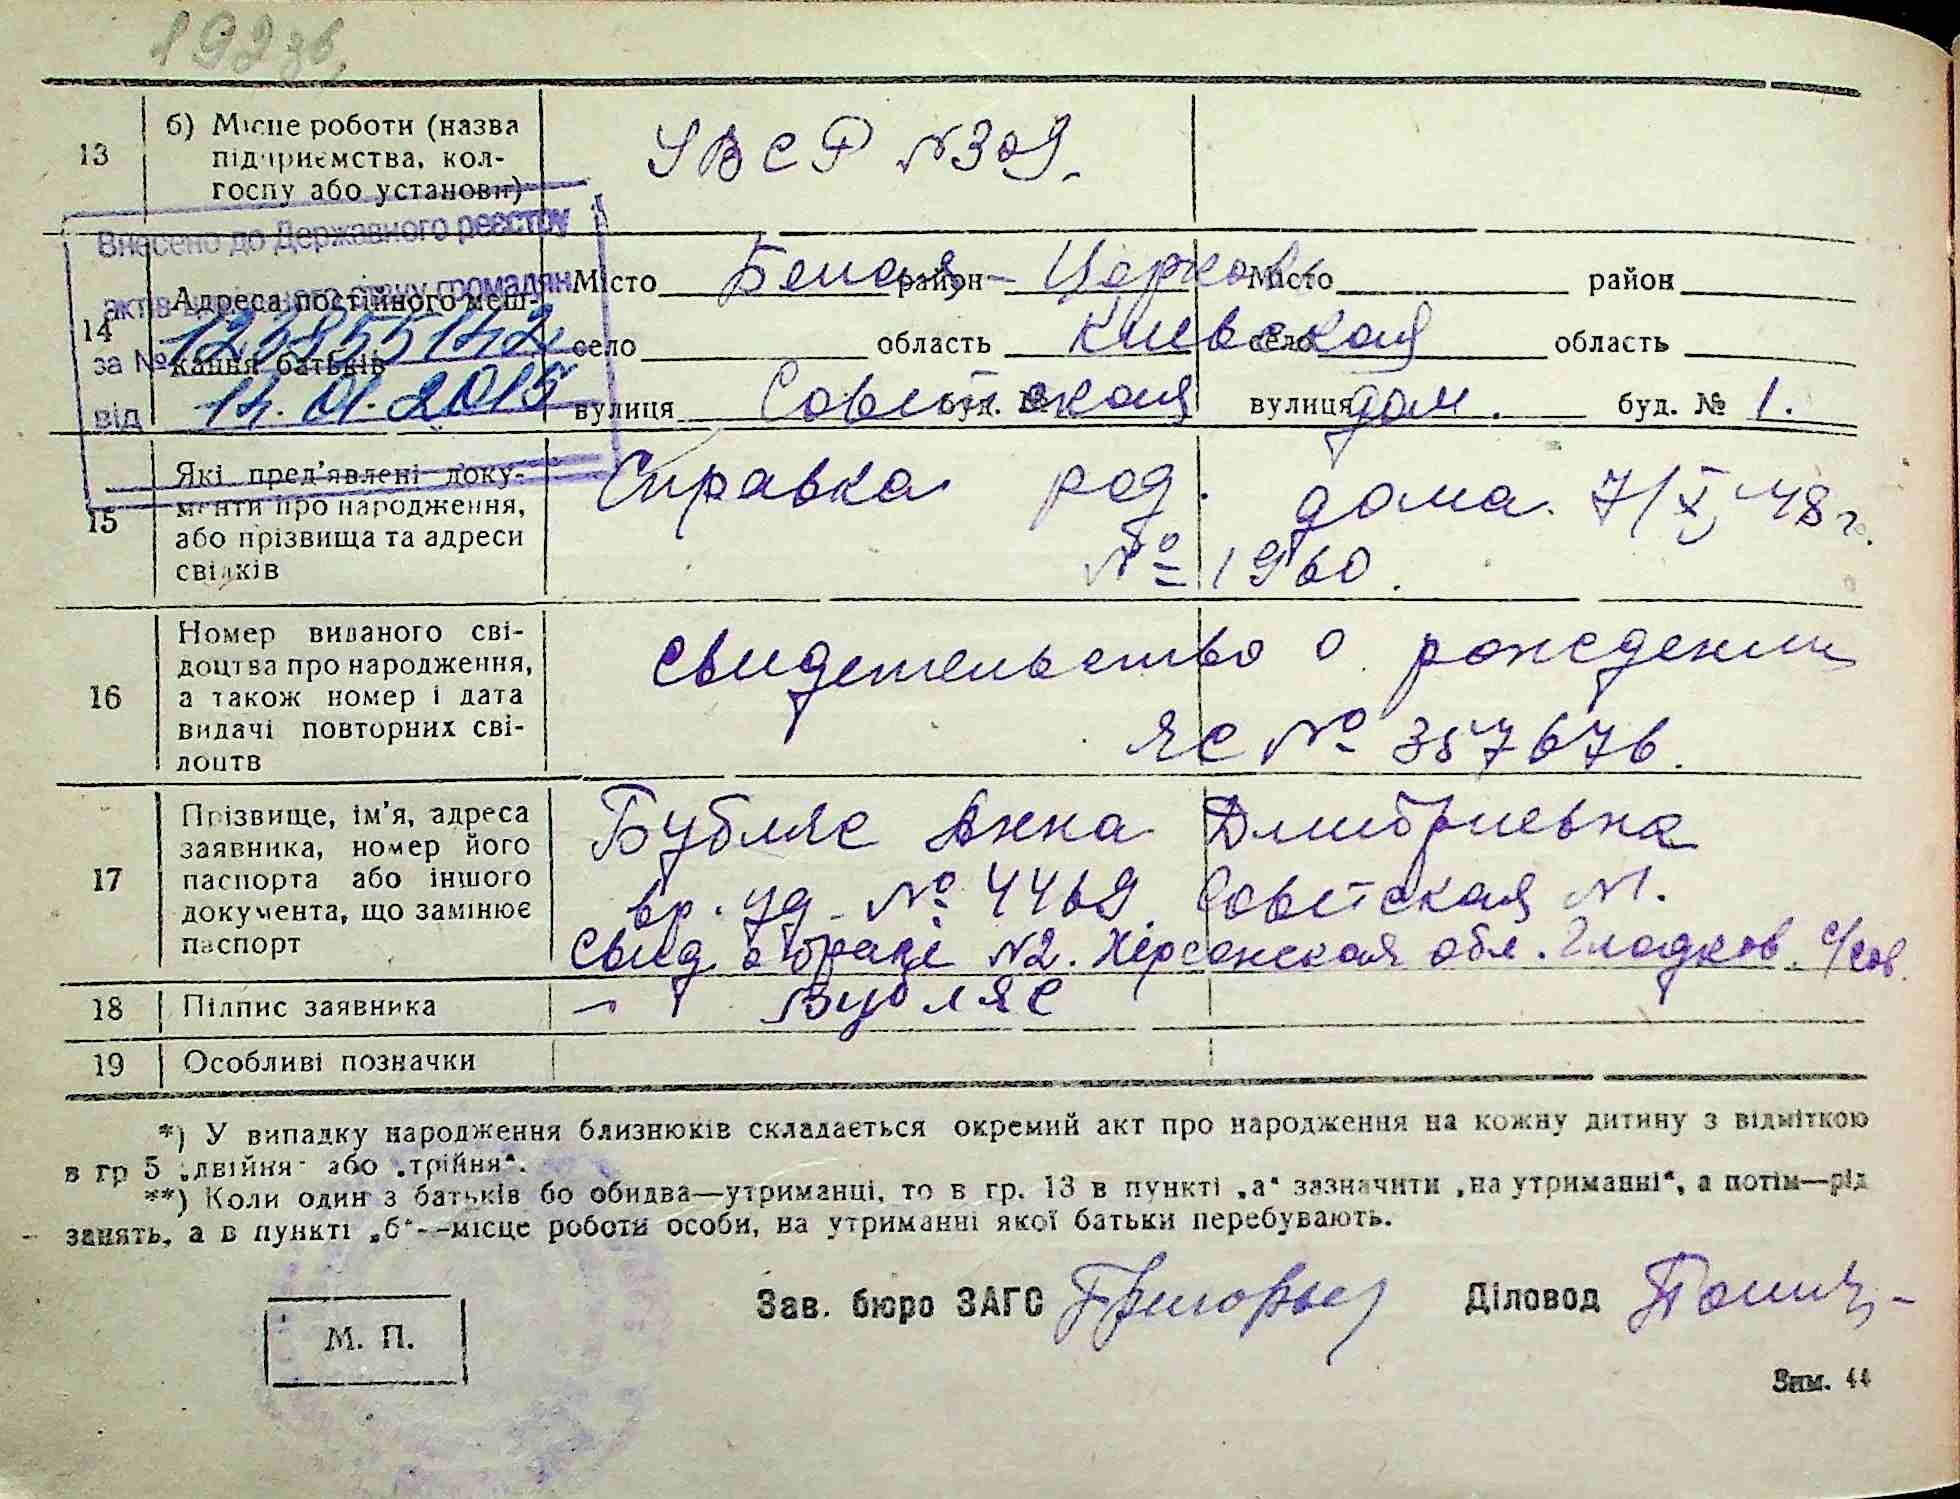 192 зв.
13
б) Місце роботи (назва
підприємства, кол-
госпу або установи)
УВСР №309.
Внесено до Державного реєстру
актів цивільного стану громадян
за №
від 14.01.2015
14
Адреса постійного меш-
кання батьків
Місто Белая- район Церковь Місто район
село область Киевская село область
вулиця Советская буд. № вулиця дом. буд. № 1.
15
Які пред'явлені доку-
менти про народження,
або прізвища та адреси
свідків
Справка род. дома. 7/X 48 г.
№ 1960.
16
Номер виданого сві-
доцтва про народження,
а також номер і дата
видачі повторних сві-
доцтв
Свидетельство о рождении
ЯС № 357676.
17
Прізвище, ім'я, адреса
заявника, номер його
паспорта або іншого
документа, що замінює
паспорт
Бубляс Анна Дмитриевна
вр. уд. № 4469 Советская №1.
Свид. о браке №2. Херсонская обл. Гладков. с/сов.
18
Підпис заявника
Бубляс
19
Особливі позначки
*) У випадку народження близнюків складається окремий акт про народження на кожну дитину з відміткою
в гр 5 „двійня" або „трійня".
**) Коли один з батьків бо обидва—утриманці, то в гр. 13 в пункті „а" зазначити „на утриманні", а потім—рід
занять, а в пункті „б"—місце роботи особи, на утриманні якої батьки перебувають.
М. П.
Зав. бюро ЗАГС
Діловод
Зим. 44